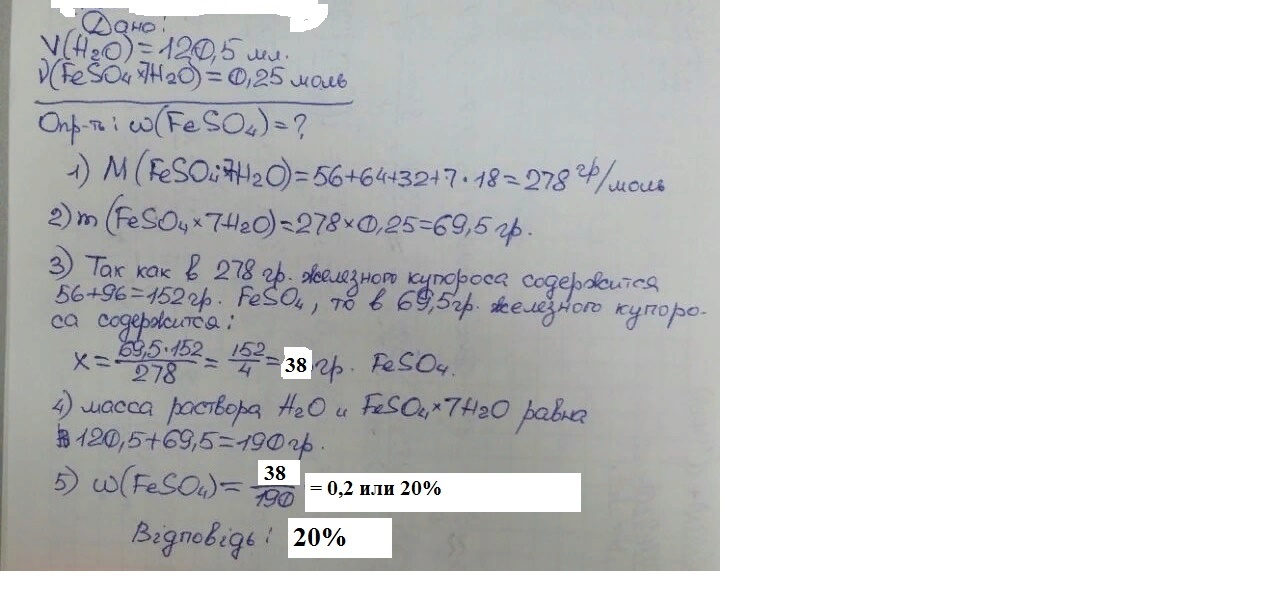 Дано:
V(H₂O)=120,5 мл.
ν(FeSO₄×7H₂O)=0,25 моль
Опр-ть: ω(FeSO₄)=?
1) M(FeSO₄·7H₂O)=56+64+32+7·18=278 гр/моль
2) m(FeSO₄×7H₂O)=278×0,25=69,5 гр.
3) Так как в 278 гр. железного купороса содержится
56+96=152 гр. FeSO₄, то в 69,5 гр. железного купоро-
са содержится:
x = 69,5·152/278 = 152/4 = 38 гр. FeSO₄.
4) масса раствора H₂O и FeSO₄×7H₂O равна
120,5+69,5=190 гр.
5) ω(FeSO₄) = 38/190 = 0,2 или 20%
Відповідь: 20%